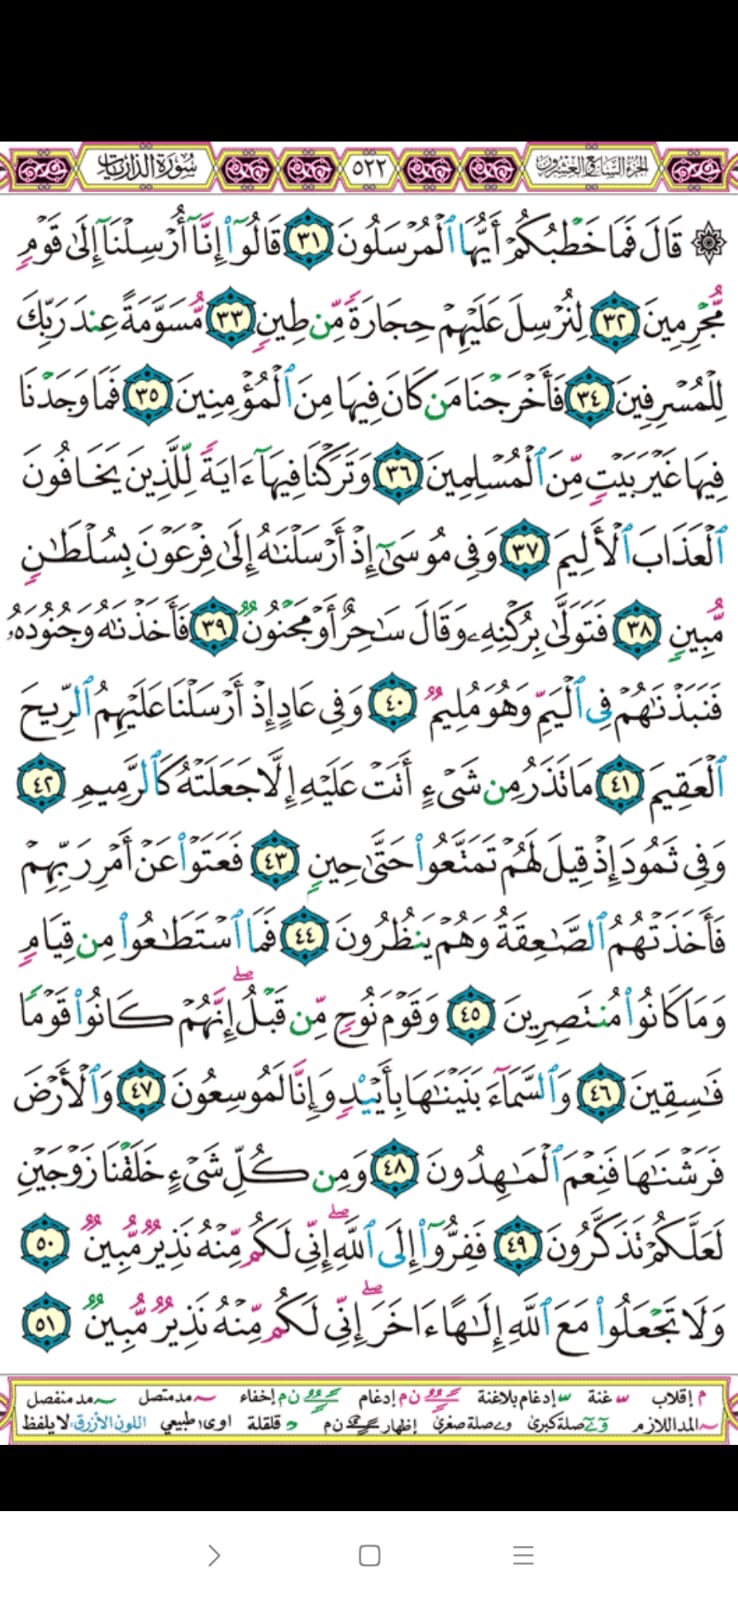 الجزء السابع والعشرون ٥٢٢ سورة الذاريات
۞ قَالَ فَمَا خَطْبُكُمْ أَيُّهَا ٱلْمُرْسَلُونَ ٣١ قَالُوٓا۟ إِنَّآ أُرْسِلْنَآ إِلَىٰ قَوْمٍ
مُّجْرِمِينَ ٣٢ لِنُرْسِلَ عَلَيْهِمْ حِجَارَةً مِّن طِينٍ ٣٣ مُّسَوَّمَةً عِندَ رَبِّكَ
لِلْمُسْرِفِينَ ٣٤ فَأَخْرَجْنَا مَن كَانَ فِيهَا مِنَ ٱلْمُؤْمِنِينَ ٣٥ فَمَا وَجَدْنَا
فِيهَا غَيْرَ بَيْتٍ مِّنَ ٱلْمُسْلِمِينَ ٣٦ وَتَرَكْنَا فِيهَآ ءَايَةً لِّلَّذِينَ يَخَافُونَ
ٱلْعَذَابَ ٱلْأَلِيمَ ٣٧ وَفِى مُوسَىٰٓ إِذْ أَرْسَلْنَٰهُ إِلَىٰ فِرْعَوْنَ بِسُلْطَٰنٍ
مُّبِينٍ ٣٨ فَتَوَلَّىٰ بِرُكْنِهِۦ وَقَالَ سَٰحِرٌ أَوْ مَجْنُونٌ ٣٩ فَأَخَذْنَٰهُ وَجُنُودَهُۥ
فَنَبَذْنَٰهُمْ فِى ٱلْيَمِّ وَهُوَ مُلِيمٌ ٤٠ وَفِى عَادٍ إِذْ أَرْسَلْنَا عَلَيْهِمُ ٱلرِّيحَ
ٱلْعَقِيمَ ٤١ مَا تَذَرُ مِن شَىْءٍ أَتَتْ عَلَيْهِ إِلَّا جَعَلَتْهُ كَٱلرَّمِيمِ ٤٢
وَفِى ثَمُودَ إِذْ قِيلَ لَهُمْ تَمَتَّعُوا۟ حَتَّىٰ حِينٍ ٤٣ فَعَتَوْا۟ عَنْ أَمْرِ رَبِّهِمْ
فَأَخَذَتْهُمُ ٱلصَّٰعِقَةُ وَهُمْ يَنظُرُونَ ٤٤ فَمَا ٱسْتَطَٰعُوا۟ مِن قِيَامٍ
وَمَا كَانُوا۟ مُنتَصِرِينَ ٤٥ وَقَوْمَ نُوحٍ مِّن قَبْلُ ۖ إِنَّهُمْ كَانُوا۟ قَوْمًا
فَٰسِقِينَ ٤٦ وَٱلسَّمَآءَ بَنَيْنَٰهَا بِأَيْي۟دٍ وَإِنَّا لَمُوسِعُونَ ٤٧ وَٱلْأَرْضَ
فَرَشْنَٰهَا فَنِعْمَ ٱلْمَٰهِدُونَ ٤٨ وَمِن كُلِّ شَىْءٍ خَلَقْنَا زَوْجَيْنِ
لَعَلَّكُمْ تَذَكَّرُونَ ٤٩ فَفِرُّوٓا۟ إِلَى ٱللَّهِ ۖ إِنِّى لَكُم مِّنْهُ نَذِيرٌ مُّبِينٌ ٥٠
وَلَا تَجْعَلُوا۟ مَعَ ٱللَّهِ إِلَٰهًا ءَاخَرَ ۖ إِنِّى لَكُم مِّنْهُ نَذِيرٌ مُّبِينٌ ٥١
م إقلاب غنة إدغام بلاغنة ن م إدغام ن م إخفاء مد متصل مد منفصل
المد اللازم صلة كبرى صلة صغرى إظهار ن م قلقلة اوى طبيعي اللون الأزرق: لا يلفظ